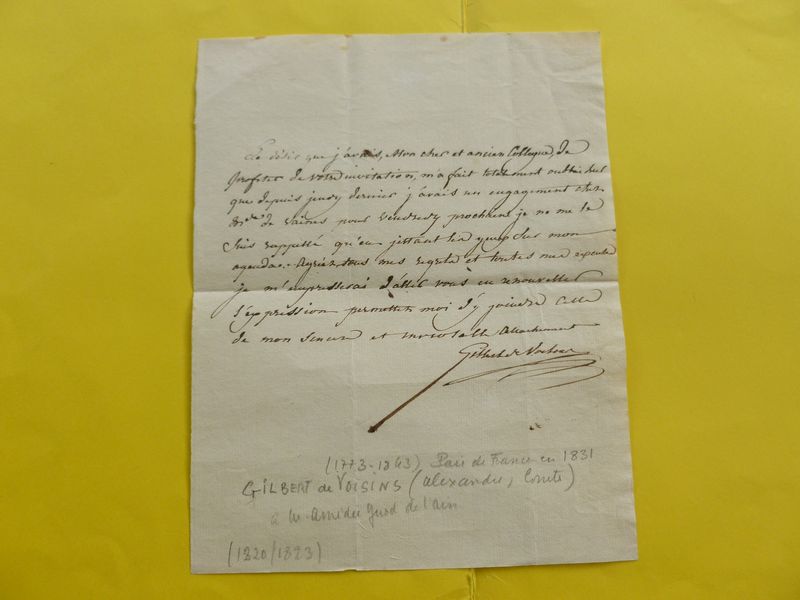 Le désir que j'avais, Mon cher et ancien Collegue, de
profiter de votre invitation, m'a fait totalement oublier
que depuis jeudy dernier j'avais un engagement chez
Mde de vaines pour vendredy prochain je ne me le
suis rappellé qu'en jettant les yeux sur mon
agenda. Agréez tous mes regrets et toutes mes excuses
je m'empresserai d'aller vous en renouveller
l'expression permettez moi d'y joindre celle
de mon sincere et inviolable attachement
Gilbert de Voisins
(1773-1843) Pair de France en 1831
GILBERT de VOISINS (alexandre, Comte)
à Mr Girod de l'ain
(1820/1823)